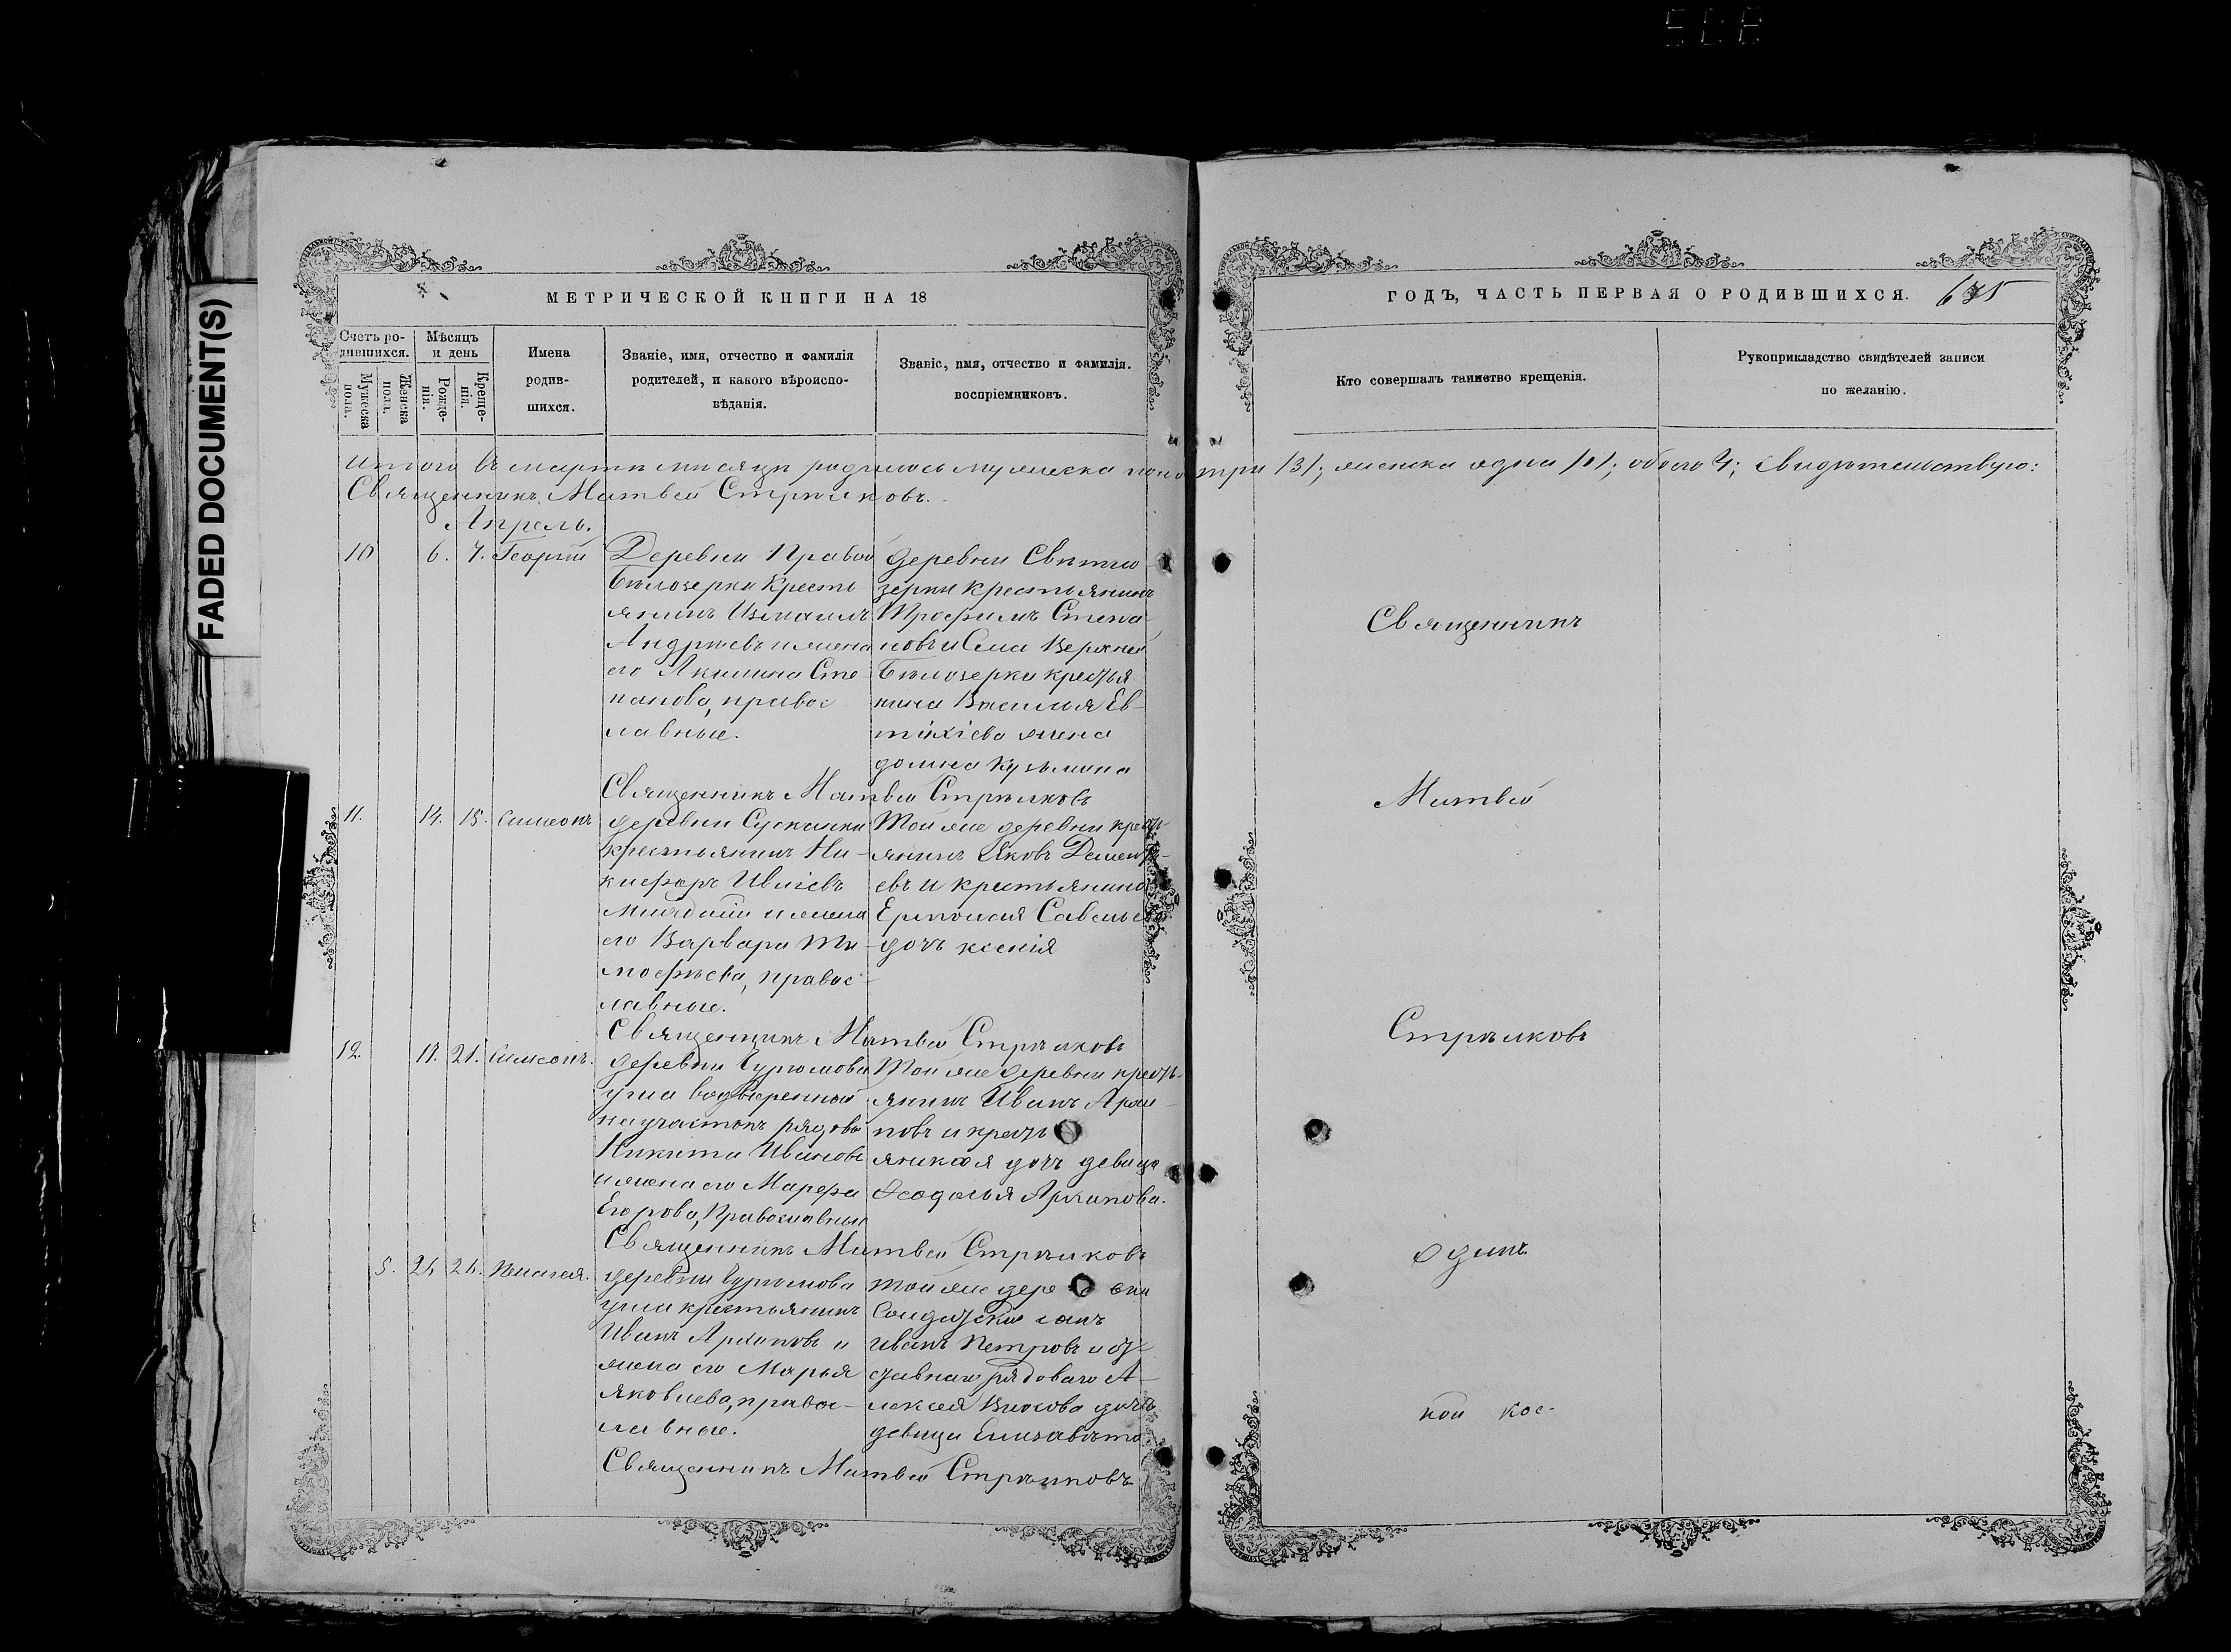 508
FADED DOCUMENT(S)
МЕТРИЧЕСКОЙ КНИГИ НА 18
ГОДЪ, ЧАСТЬ ПЕРВАЯ О РОДИВШИХСЯ. 675
Счетъ ро-
дившихся.
Мужеска
пола.
Женска
пола.
Мѣсяцъ
и день
Рожде-
нія.
Креще-
нія.
Имена
родив-
шихся.
Званіе, имя, отчество и фамилія
родителей, и какого вѣроиспо-
вѣданія.
Званіе, имя, отчество и фамилія.
воспріемниковъ.
Кто совершалъ таинство крещенія.
Рукоприкладство свидѣтелей записи
по желанію.
Итого въ мартѣ мѣсяцѣ родилось мужеска пола три /3/; женска одна /1/; обоего 4; Свидѣтельствую:
Священникъ Матвей Стрѣлковъ.
Апрель.
10 6. 7. Георгій
Деревни Правой
Бѣлозерки Кресть-
янинъ Измаилъ
Андреевъ и жена
его Акилина Сте-
панова, правос
лавные.
деревни Свѣтло
зерки крестьянинъ
Трофимъ Степа
новъ и Села Верхней
Бѣлозерки крестья
нина Василія Ев-
тихіева жена
Кузьмина
Священникъ Матвей Стрѣлковъ
11. 14. 15. Симеонъ
деревни Сускинки
крестьянинъ Ни-
кифоръ Ивліевъ
и жена
его Варвара Ти-
мофѣева, правос-
лавные.
Той же деревни крест-
янинъ Яковъ Дементь-
евъ и крестьянина
Ермолая Савельева
дочь ксенія
Священникъ Матвей Стрѣлковъ
12. 17. 21. Симеонъ.
деревни
на участокъ рядовой
Никита Ивановъ
и жена его Марфа
Егорова, Православные
Той же деревни кресть-
янинъ Иванъ Архи
повъ и кресть
янская дочь девица
Ѳеодосья Архипова.
Священникъ Матвей Стрѣлковъ
5. 24 24. Пелагея.
деревни
крестьянинъ
Иванъ Архиповъ и
жена его Марья
Яковлева, правос-
лавные.
той же дере вни
Солдатскій сынъ
иванъ Петровъ и от-
ставнаго рядоваго А-
лексея Викова дочь
девица Елизавѣта
Священникъ Матвей Стрѣлковъ
Священникъ
Матвей
Стрѣлковъ
одинъ